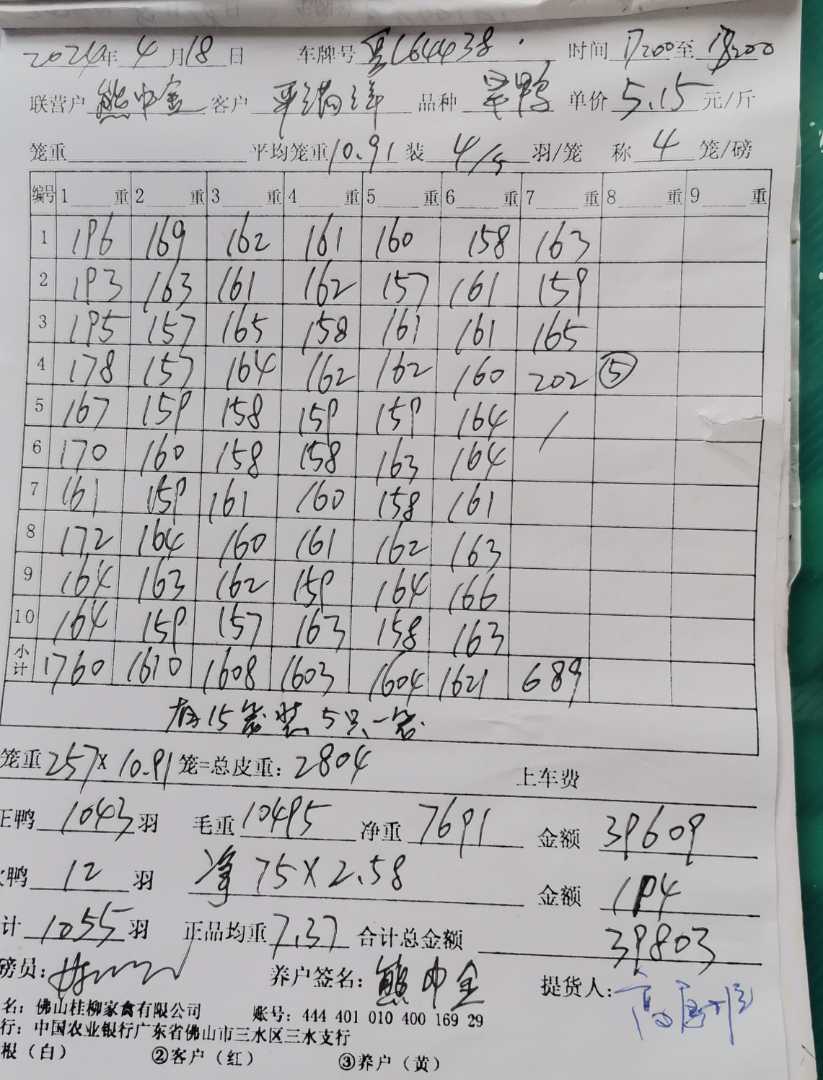 2024年 4 月 18 日 车牌号 粤C64438 时间 17200 至 18200
联营户 熊中金 客户 品种 单价 5.15 元/斤
笼重 平均笼重 10.91 装 4/5 羽/笼 称 4 笼/磅
编号 1 重 2 重 3 重 4 重 5 重 6 重 7 重 8 重 9 重
1 196 169 162 161 160 158 163
2 193 163 161 162 157 161 159
3 195 157 165 158 161 161 165
4 178 157 164 162 162 160 202 ⑤
5 167 159 158 159 159 164 /
6 170 160 158 158 163 164
7 161 159 161 160 158 161
8 172 164 160 161 162 163
9 164 163 162 159 164 166
10 164 159 157 163 158 163
小计 1760 1610 1608 1603 1604 1621 689
有15笼装5只一笼
笼重 257×10.91 笼=总皮重: 2804 上车费
正鸭 1043 羽 毛重 10495 净重 7691 金额 39609
鸭 12 羽 净 75×2.58 金额 194
计 1055 羽 正品均重 7.37 合计总金额 39803
磅员: 养户签名: 熊中金 提货人:
名: 佛山桂柳家禽有限公司 账号: 444 401 010 400 169 29
行: 中国农业银行广东省佛山市三水区三水支行
根(白) ②客户(红) ③养户(黄)